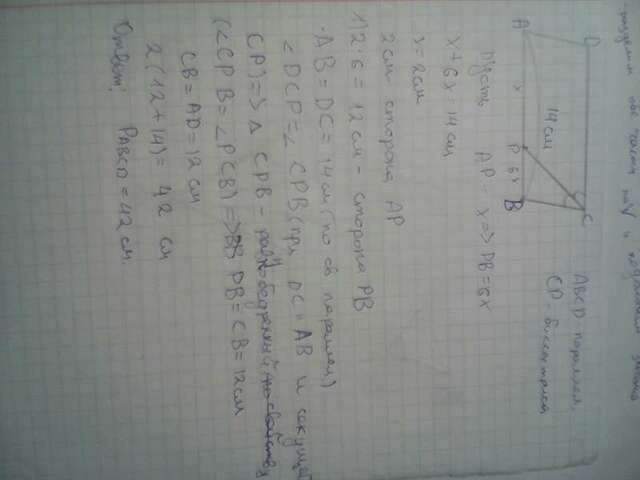 разделим обе части на
A
D
x
14 см
P
6x
B
C
ABCD - параллел.
CP биссектриса
Пусть AP - x => PB = 6x
x + 6x = 14 см
x = 2 см
2 см - сторона AP
1) 2·6 = 12 см - сторона PB
AB = DC = 14 см (по св параллел)
∠DCP = ∠CPB (при DC ∥ AB и секущей
CP) => △ CPB - равнобедренный
(∠CPB = ∠PCB) => PB = CB = 12 см
CB = AD = 12 см.
2(12 + 14) = 42 см
Ответ: PABCD = 42 см.